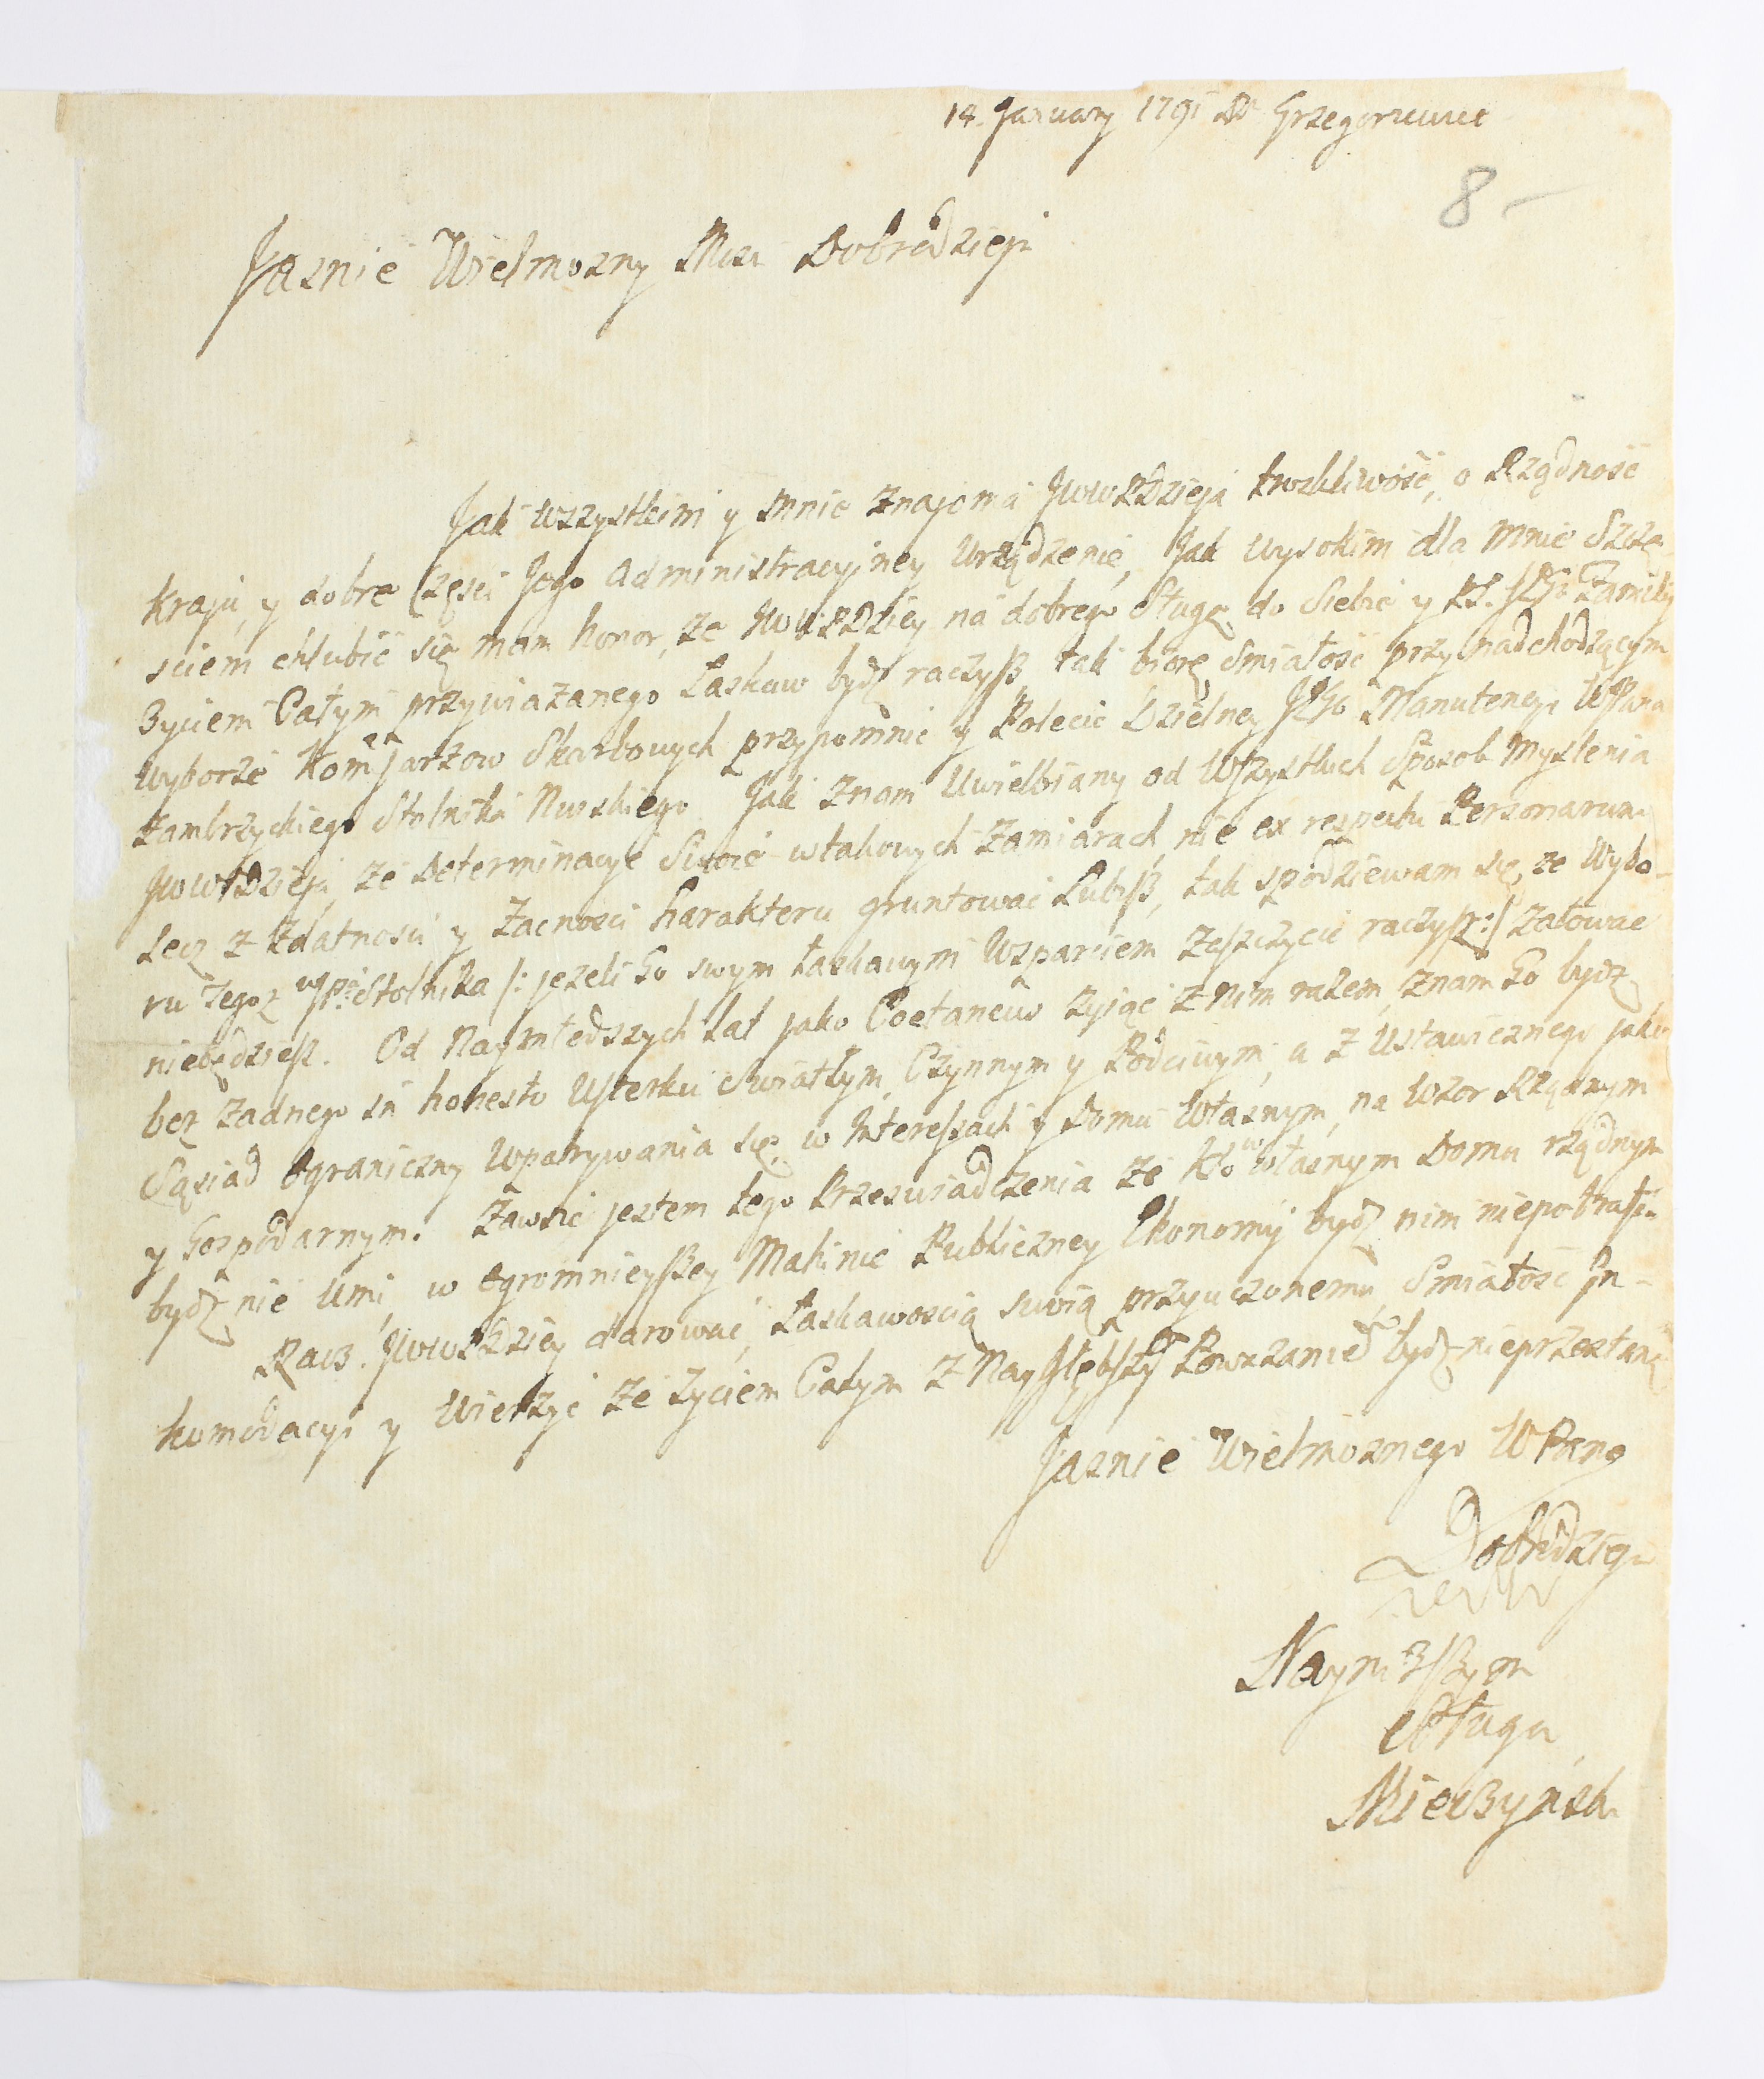 14. January 1791 Dt Grzegorzewice
8 –
Jasnie Wielmozny Msci Dobrodzieju
Jak wszystkim y mnie znajoma JWWPDzieja troskliwość, o Rządność
Kraju, y dobre Części Jego administracyjney Urządzenie, Jak wysokim dla mnie Szczę-
sciem chlubić się mam honor, ze JWWPDziey na dobrego Sługę do Siebie y Familij
Zyciem Całym przywiązanego Łaskaw bydź raczysz, tak biorę smiałość przy nadchodzącym
wyborze Komisarzow Skarbowych przypomnić y Polecić Dzielney JEgo Manutencyi WPana
Kambrzyckiego Stolnika Nurskiego. Jak znam Uwielbiany od Wszystkich Sposob Myslenia
JWWPDzieja, ze Determinacyje Swoie w takowych zamiarach nie ex respectu Personarum
lecz z zdatnosci y zacnosci harakteru gruntować Lubisz, tak spodziewam się, ze Wybo-
ru Tegoz WJPa Stolnika /: jezeli Go swym łaskawym Wsparciem zaszczycić raczysz :/ załować
niebędziesz. Od Naymłodszych Lat jako Coetaneus zyjąc z nim razem, znam Go bydź
bez zadnego in honesto Usterku Swiatłym, Czynnym y Poćciwym, a z Ustawicznego jako
Sąsiad Ograniczny Wpatrywania się w Interessach y Domu Własnym, na Wzor Rządnym
y Gospodarnym. Zawsze jestem tego Przeswiadczenia ze Kto w własnym Domu rządnym
bydź nie Umi, w ogromnieyszey Mahinie Publiczney Ekonomij bydź nim niepotrafi.
Racz JWWPDziey darować, Łaskawoscią swoią przyuczonemu, Smiałość In-
komodacyi y Wierzyć ze Zyciem Całym z Naygłębszym Powazaniem bydź nieprzestanę
Jasnie Wielmoznego WPana
Dobrodzieja
Naynizszym
Sługą
Mieczyński